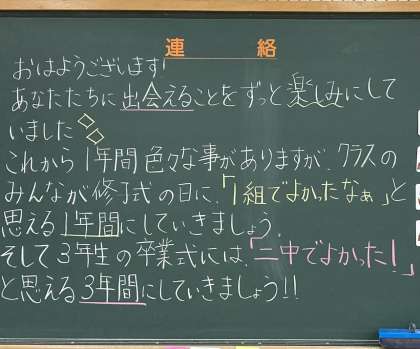 連絡
おはようございます!
あなたたちに出会えることをずっと楽しみにして
いました
これから1年間色々な事がありますが、クラスの
みんなが修了式の日に、「1組でよかったなぁ」と
思える1年間にしていきましょう。
そして3年生の卒業式には、「二中でよかった!」
と思える3年間にしていきましょう!!